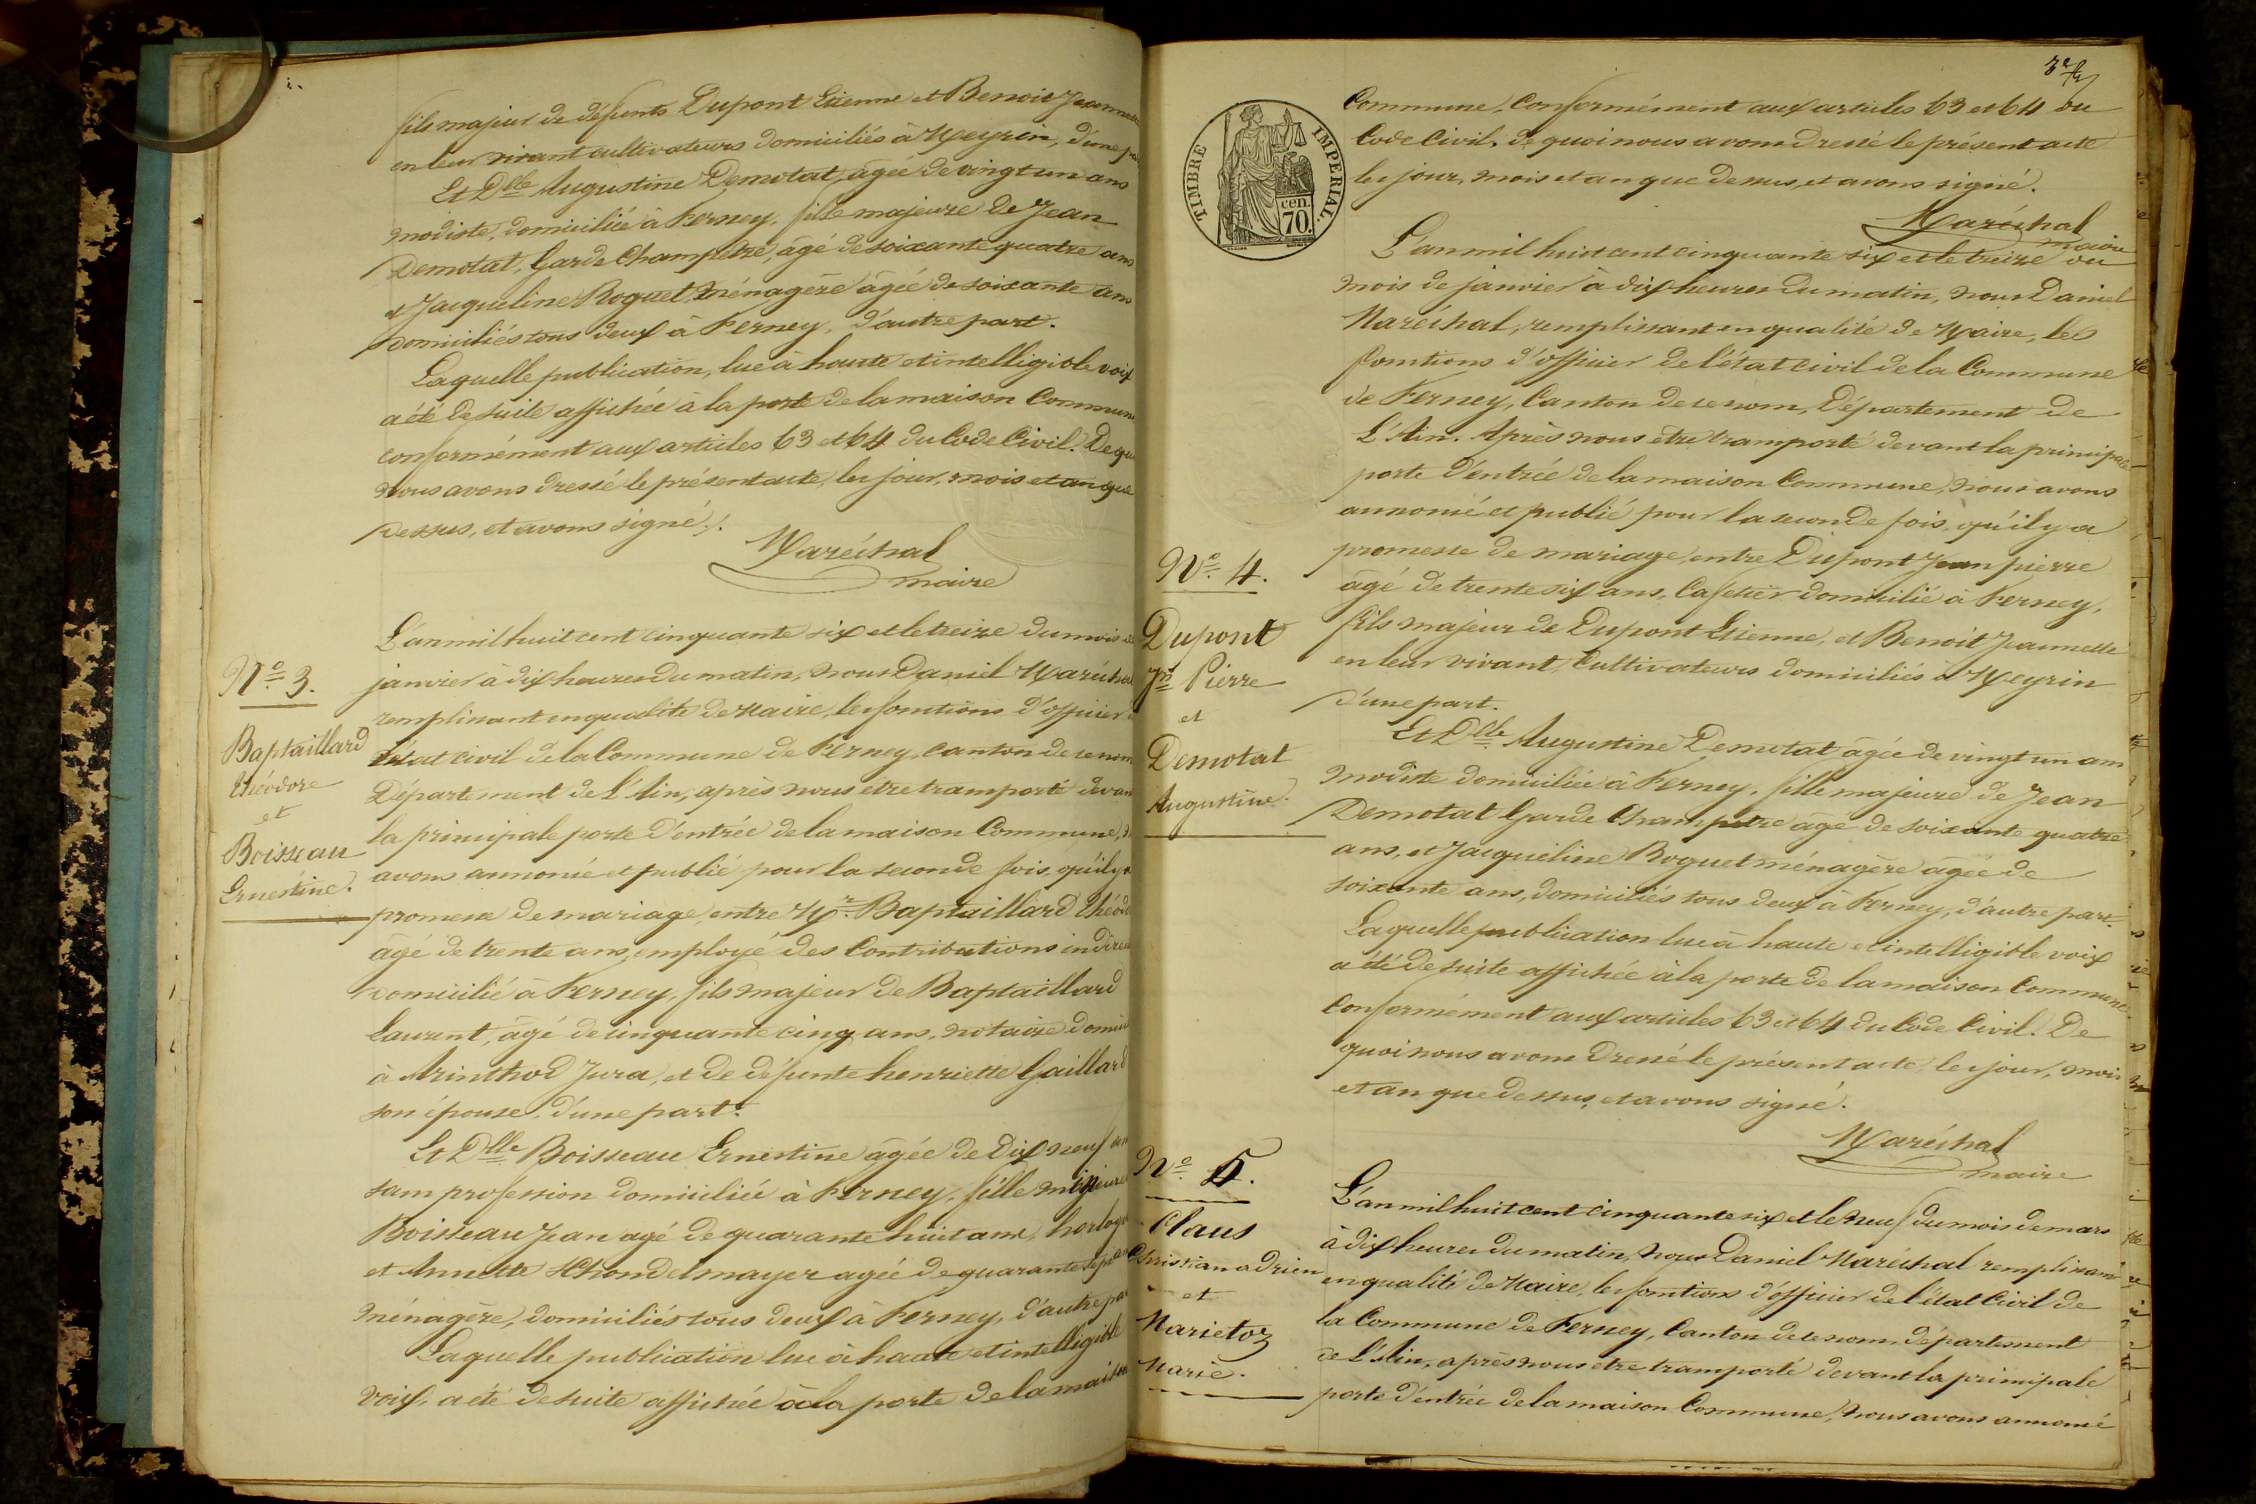 fils majeur de défunts Dupont Etienne et Benoit Jeannette
en leur vivant cultivateurs domiciliés à Meyrin, d'une part
Et Dlle Augustine Demotat, âgée de vingt un ans
modiste, domiciliée à Ferney, fille majeure de Jean
Demotat, Garde Champêtre, âgé de soixante quatre ans
et Jacqueline Roguet, ménagère âgée de soixante ans
domiciliés tous deux à Ferney, d'autre part.
Laquelle publication, lue à haute et intelligible voix
a été de suite affichée à la porte de la maison Commune
conformément aux articles 63 et 64 du Code Civil. De quoi
nous avons dressé le présent acte, les jour, mois et an que
dessus, et avons signé./.
Maréchal
maire
No 3.
Baptaillard
théodore
et
Boisseau
Ernestine.
L'an mil huit cent cinquante six et le treize du mois de
janvier à dix heures du matin, nous Daniel Maréchal
remplissant en qualité de Maire, les fonctions d'officier
état civil de la Commune de Ferney, canton de ce nom
Département de L'Ain, après nous être transporté devant
la principale porte d'entrée de la maison Commune,
avons annoncé et publié pour la seconde fois, qu'il y a
promesse de mariage, entre Mr Baptaillard théodore
âgé de trente ans, employé des Contributions indirectes
domicilié à Ferney, fils majeur de Baptaillard
Laurent, âgé de cinquante cinq ans, notaire domicilié
à Arinthod Jura, et de défunte henriette Gaillard
son épouse, d'une part.
Et Dlle Boisseau Ernestine âgée de Dix neuf ans
sans profession domiciliée à Ferney, fille mineure
Boisseau Jean agé de quarante huit ans, horloger
et Annette agée de quarante sept ans
ménagère, domiciliés tous deux à Ferney, d'autre part
Laquelle publication lue à haute et intelligible
voix, a été de suite affichée à la porte de la maison
Commune, Conformément aux articles 63 et 64 du
Code Civil. de quoi nous avons dressé le présent acte
les jour, mois et an que dessus, et avons signé.
Maréchal
maire
TIMBRE IMPERIAL.
cen.
70.
L'an mil huit cent cinquante six et le treize du
mois de janvier à dix heures du matin, nous Daniel
Maréchal, remplissant en qualité de Maire, les
fonctions d'officier de l'état civil de la Commune
de Ferney, Canton de ce nom, Département de
L'Ain. Après nous être transporté devant la principale
porte d'entrée de la maison Commune, nous avons
annoncé et publié pour la seconde fois, qu'il y a
promesse de mariage, entre Dupont Jean pierre
âgé de trente six ans, Cafetier domicilié à Ferney,
fils majeur de Dupont Etienne, et Benoit Jeannette
en leur vivant, Cultivateurs domiciliés à Meyrin
d'une part.
No 4.
Dupont
Jn Pierre
et
Demotat
Augustine.
Et Dlle Augustine Demotat âgée de vingt un ans
modiste domiciliée à Ferney, fille majeure de Jean
Demotat Garde Champetre âgé de soixante quatre
ans, et Jacqueline Roguet ménagère âgée de
soixante ans, domiciliés tous deux à Ferney, d'autre part.
Laquelle publication lue à haute et intelligible voix
a été de suite affichée à la porte de la maison Commune
Conformément aux articles 63 et 64 du Code Civil. De
quoi nous avons dressé le présent acte, les jour, mois
et an que dessus, et avons signé.
Maréchal
maire
No 5.
Claus
Christian adrien
et
Marietoz
Marie.
L'an mil huit cent cinquante six et le neuf du mois de mars
à dix heures du matin, nous Daniel Maréchal remplissant
en qualité de Maire, les fonctions d'officier de l'état Civil de
la Commune de Ferney, Canton de ce nom, département
de L'Ain, après nous etre transporté devant la principale
porte d'entrée de la maison Commune, nous avons annoncé